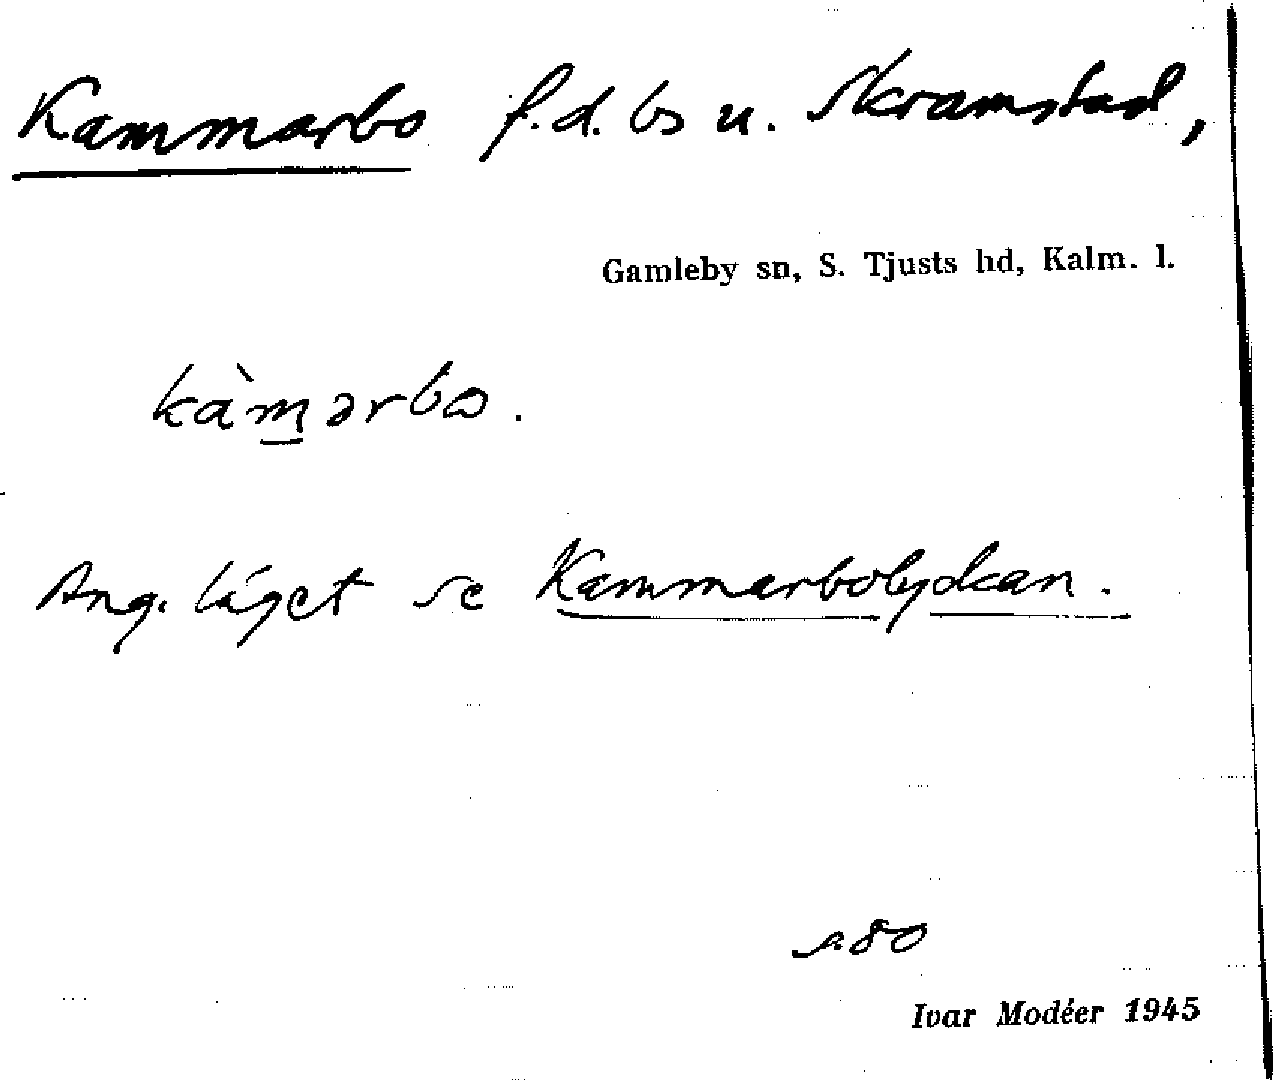 Kammarbo f.d. bs u. Skramstad,
Gamleby sn, S. Tjusts hd, Kalm. l.
kàm̲ərbo.
Ang. läget se Kammarbolyckan.
s. 80
Ivar Modéer 1945